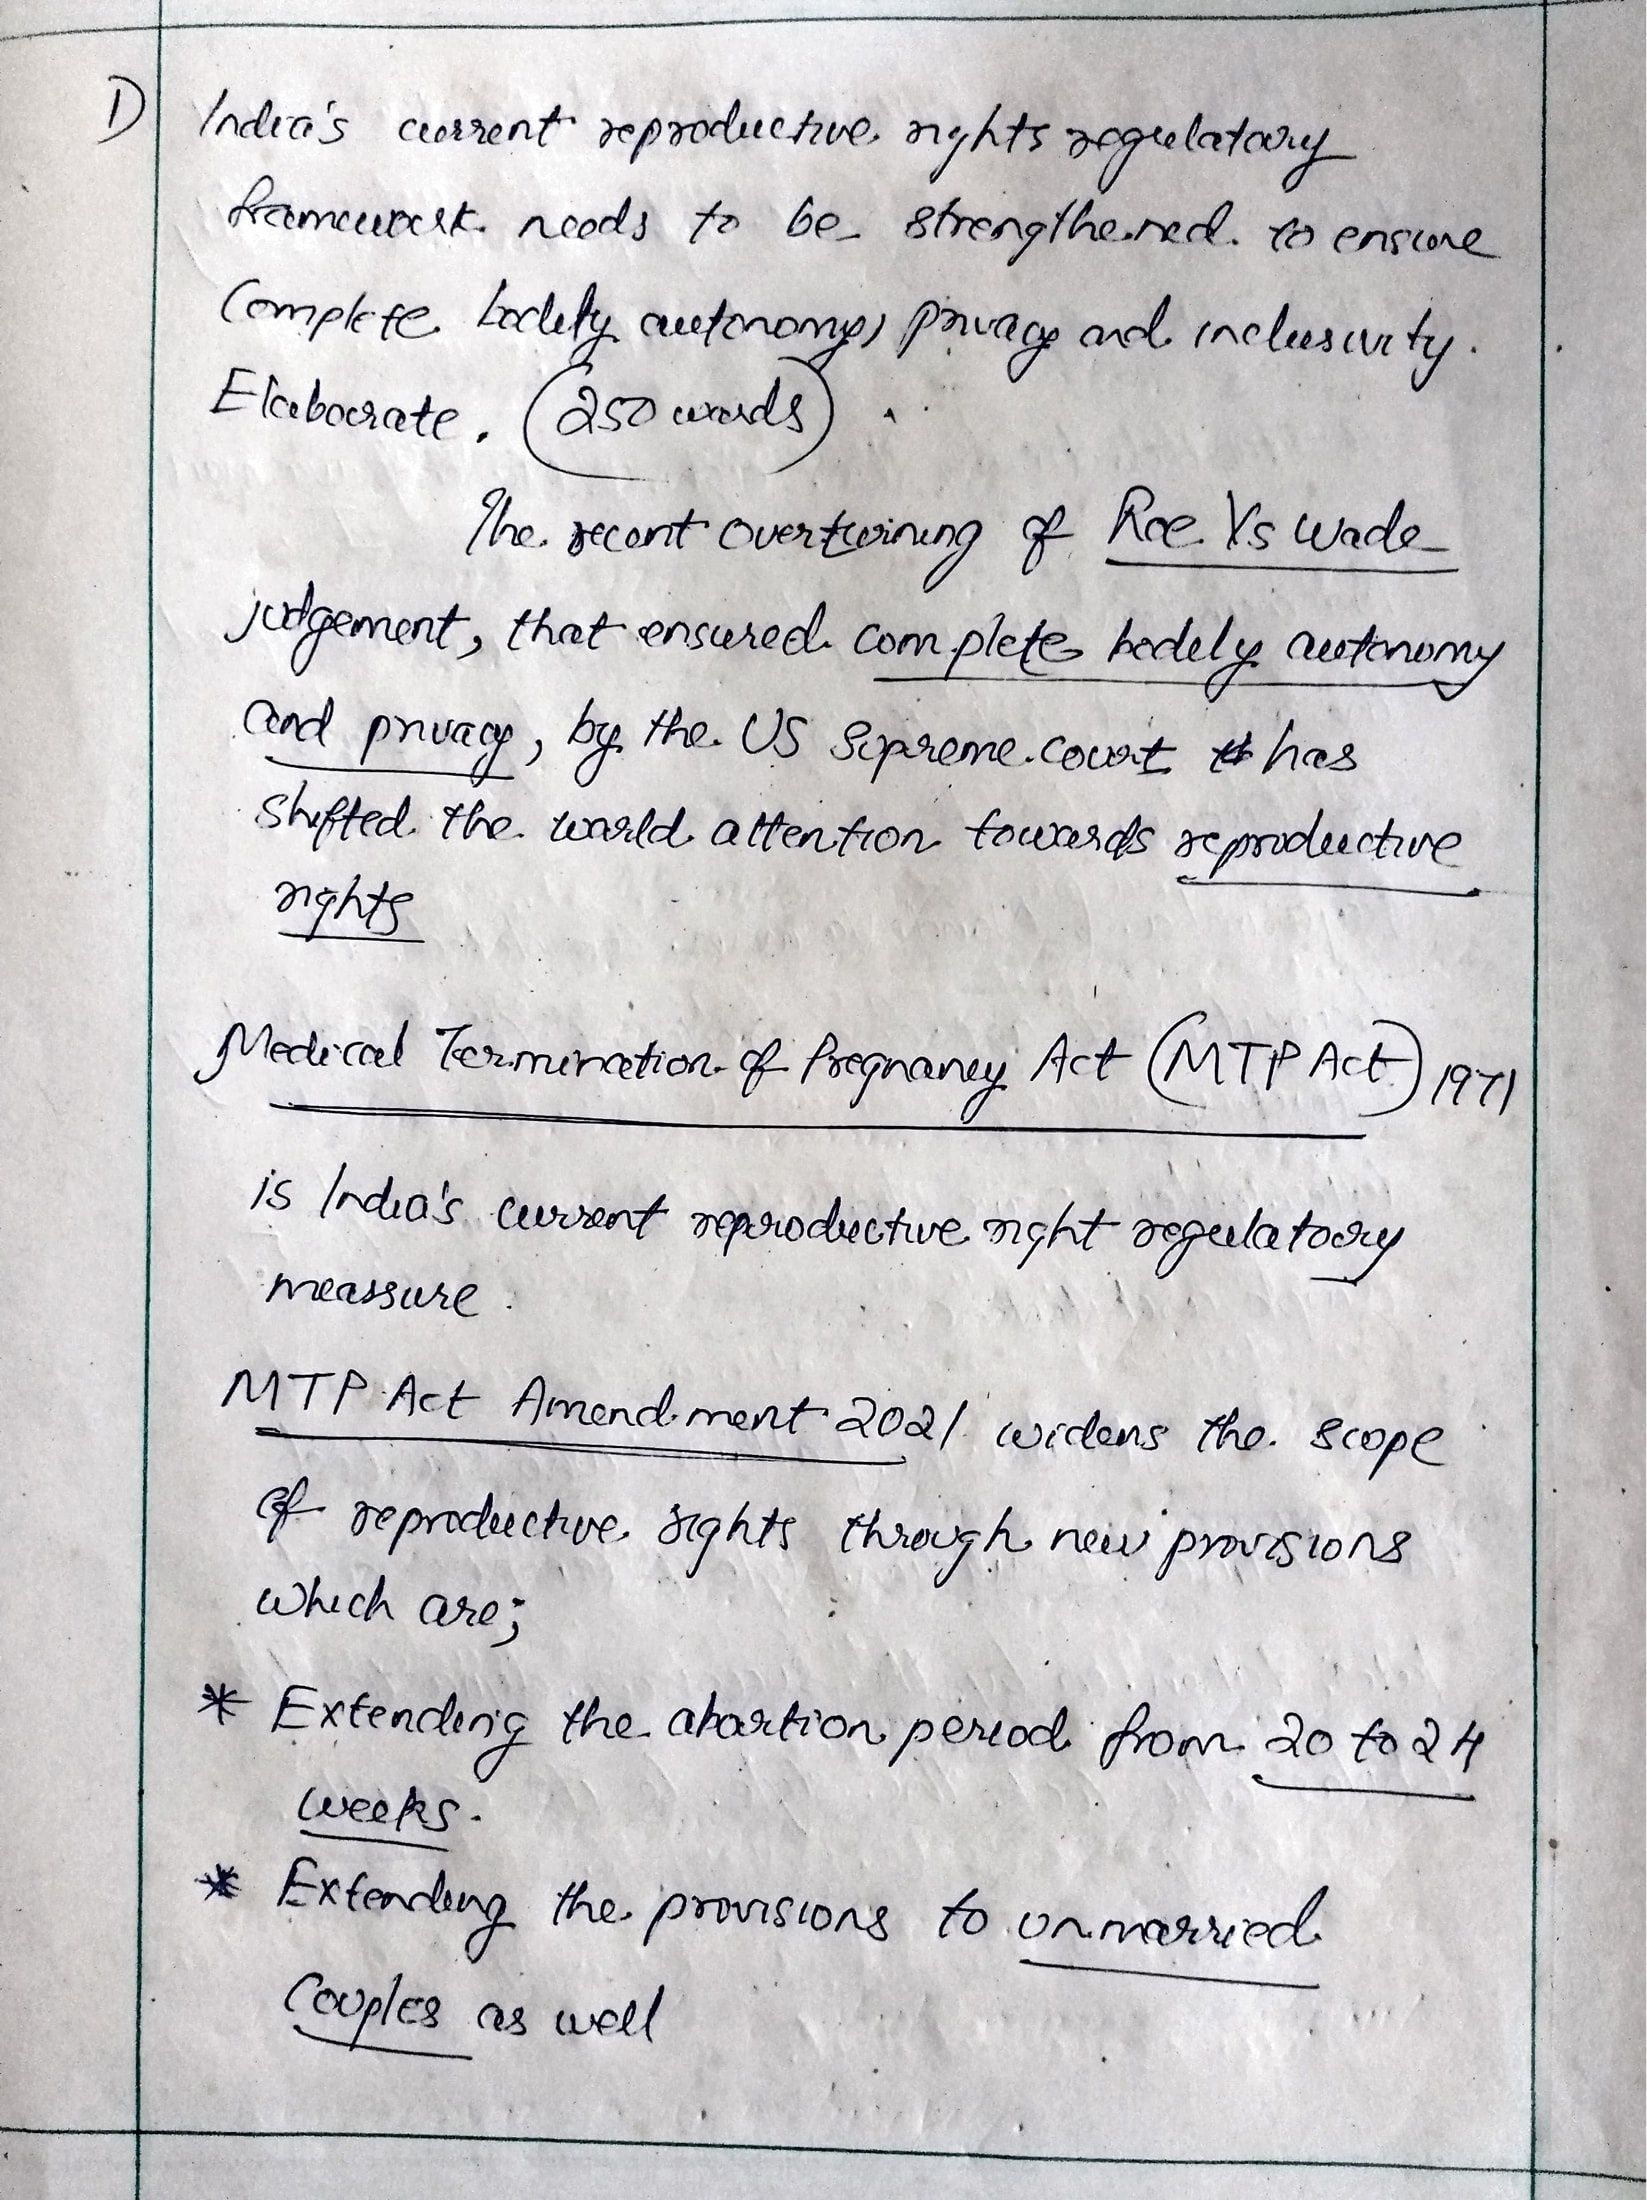 1) India's current reproductive rights regulatory
framework needs to be strengthened to ensure
Complete bodily autonomy, privacy and inclusivity.
Elaborate. (250 words)
The recent overturning of Roe Vs Wade
judgement, that ensured complete bodily autonomy
and privacy, by the US Supreme court has
shifted the world attention towards reproductive
rights
Medical Termination of Pregnancy Act (MTP Act) 1971
is India's current reproductive right regulatory
meassure.
MTP Act Amendment 2021 widens the scope
of reproductive rights through new provisions
which are;
* Extending the abortion period from 20 to 24
weeks.
* Extending the provisions to unmarried
Couples as well